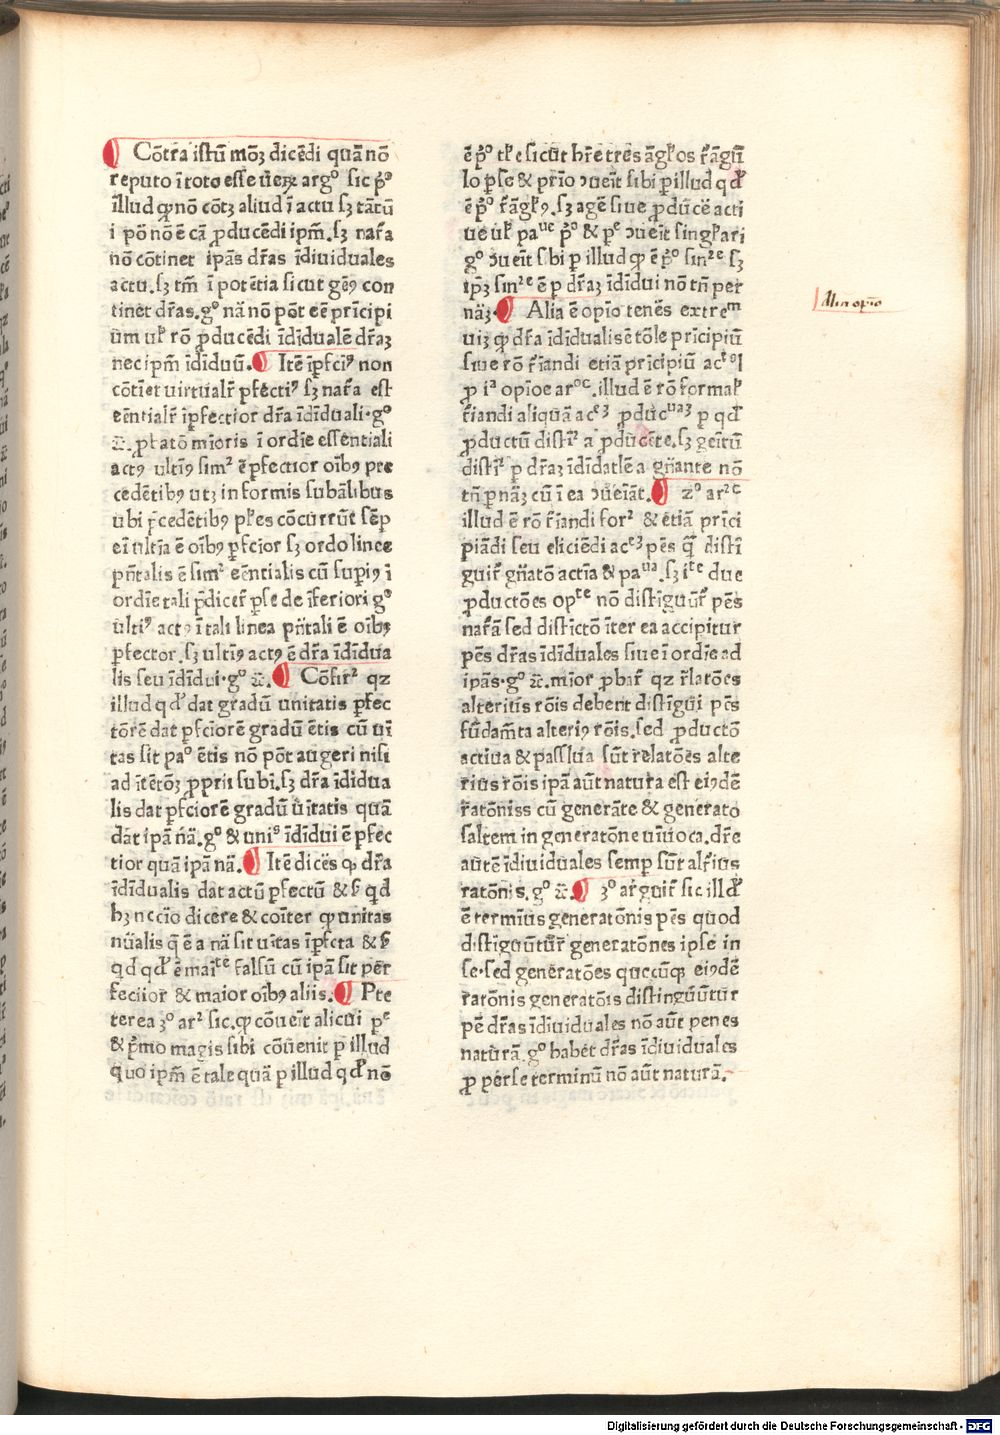 Cōtra istū moꝫ dicēdi quā nō
reputo ī toto esse ueꝝ argᵒ sic pͦ
illud qꝛ nō cōtꝫ aliud ī actu sꝫ tātū
i pō nō ē cā ꝓducēdi ipm̄. sꝫ nař̄a
nō cōtinet ipās dr̄as īdiuiduales
actu. sꝫ tm̄ ī potētia sicut genꝰ con
tinet dr̄as. gᵒ nā nō pōt eē prīcipi
um ul̕ rō ꝓducēdi īdiduālē dr̄aꝫ
nec ipm̄ īdiduū. Itē īpfciꝰ non
cōtīet uirtualr̄ pfectiꝰ sꝫ nař̄a est
eēntialr̄ īpfectior dr̄a īdiduali. gᵒ
⁊c̄. ꝓbatō mīoris ī ordīe essētiali
actꝰ ultīꝰ simʳ ē pfectior oībꝰ pre
cedētibꝰ utꝫ in formis subālibus
ubi p̄cedētibꝰ pl̕es cōcurrūt sēp
eī ultīa ē oībꝰ pfcior sꝫ ordo linee
pn̄talis ē simʳ eēntialis cū supiꝰ ī
ordīe tali p̄dicet̄ pse de īferiori gᵒ
ultīꝰ actꝰ ī tali linea pn̄tali ē oībꝰ
pfector. sꝫ ultīꝰ actꝰ ē dr̄a īdīdua
lis seu īdīdui. gᵒ ⁊c̄. Cōfirʳ qꝛ
illud qd̕ dat gradū unitatis pfec
tōrē dat pfciorē gradū ētis cū uī
tas sit paᵒ ētis nō pōt augeri nisi
ad ītētōꝫ ꝓprii subī. sꝫ dr̄a īdidua
lis dat pfciorē gradū uītatis quā
dat ipā nā. gᵒ & uniꝰ īdīdui ē pfec
tior quā ipā nā. Itē dicēs qꝛ dr̄a
īdīdualis dat actū pfectū & sͥ qd
hꝫ nccīo dicere & cōiter qꝛ unitas
nūalis q̄ ē a nā sit uītas īpfcta & sͥ
qd qd̕ ē maīᵗᵉ falsū cū ipā sit per
fectior & maior oībꝰ aliis. Pre
terea 3ᵒ arʳ sic. qꝛ cōueīt alicui pᵉ
& pͥmo magis sibi cōuenit p illud
quo ipm̄ ē tale quā p illud qd̕ nō
ē pͦ tl̕e sicut hr̄e tres āgl̕os r̄āgū
lo pse & prīo ↄueīt sibi p illud qd̕
ē pͦ r̄āgl̕ꝰ. sꝫ agē siue ꝓdūcē acti
ue ul̕ paᵘᵉ pͦ & pᵉ ↄueīt singl̕ari
gᵒ ↄueīt sibi p illud qꝛ ē pͦ sinʳᵉ sꝫ
ipꝫ sinʳᵉ ē p dr̄aꝫ īdīdui nō tn̄ per
nāꝫ. Alia ē opīo tenēs extreᵐ
uiꝫ qꝛ dr̄a īdīdualis ē tōle prīcipiū
siue rō r̄iandi etiā prīcipiū acᵗᵒⁱ
ꝓ iᵃ opīoe arᵒᶜ. illud ē rō formal̕
r̄iandi aliquā acᵉꝫ ꝓducᵘᵃꝫ p qd̕
ꝓductū distʳ a ꝓducēte. sꝫ geītū
distʳ p dr̄aꝫ īdīdatlē a gn̄ante nō
tn̄ p nāꝫ cū ī ea ↄueīāt. 2ᵒ arʳᶜ
illud ē rō r̄iandi forʳ & etiā prīci
piādi seu eliciēdi acᵉꝫ pēs q̄ distī
guit̄ gn̄atō actīa & paᵘᵃ. sꝫ iᵗᵉ due
ꝓductōes opᵗᵉ nō distīguūt̄ pēs
nař̄ā sed distīctō īter ea accipitur
pēs dr̄as īdīduales siue ī ordīe ad
ipās. gᵒ ⁊c̄. mīor ꝓbat̄ qꝛ r̄latōes
alteriꝰ rōis debent distīgui pēs
fūdam̄ta alteriꝰ rōis. sed ꝓductō
actiua & passiua sūt relatōes alte
rius rōis ipā aūt natura est eiꝰdē
r̄atōnis s cū generāte & generato
saltem in generatōne uīuoca. dr̄e
autē īdiuiduales semp sūt altr̄ius
ratōnis. gᵒ ⁊c̄. 3ᵒ arguit̄ sic illd̕
ē termiūs generatōnis pēs quod
distīguūtur̄ generatōnes ipse in
se. sed generatōes quecūqꝫ eiꝰdē
r̄atōnis generatōis distingūūtur
pē dr̄as īdiuiduales nō aūt penes
natūrā. gᵒ habēt dr̄as īdiuiduales
ꝓ per se terminū nō aūt naturā.
Alia opīo
Digitalisierung gefördert durch die Deutsche Forschungsgemeinschaft - DFG